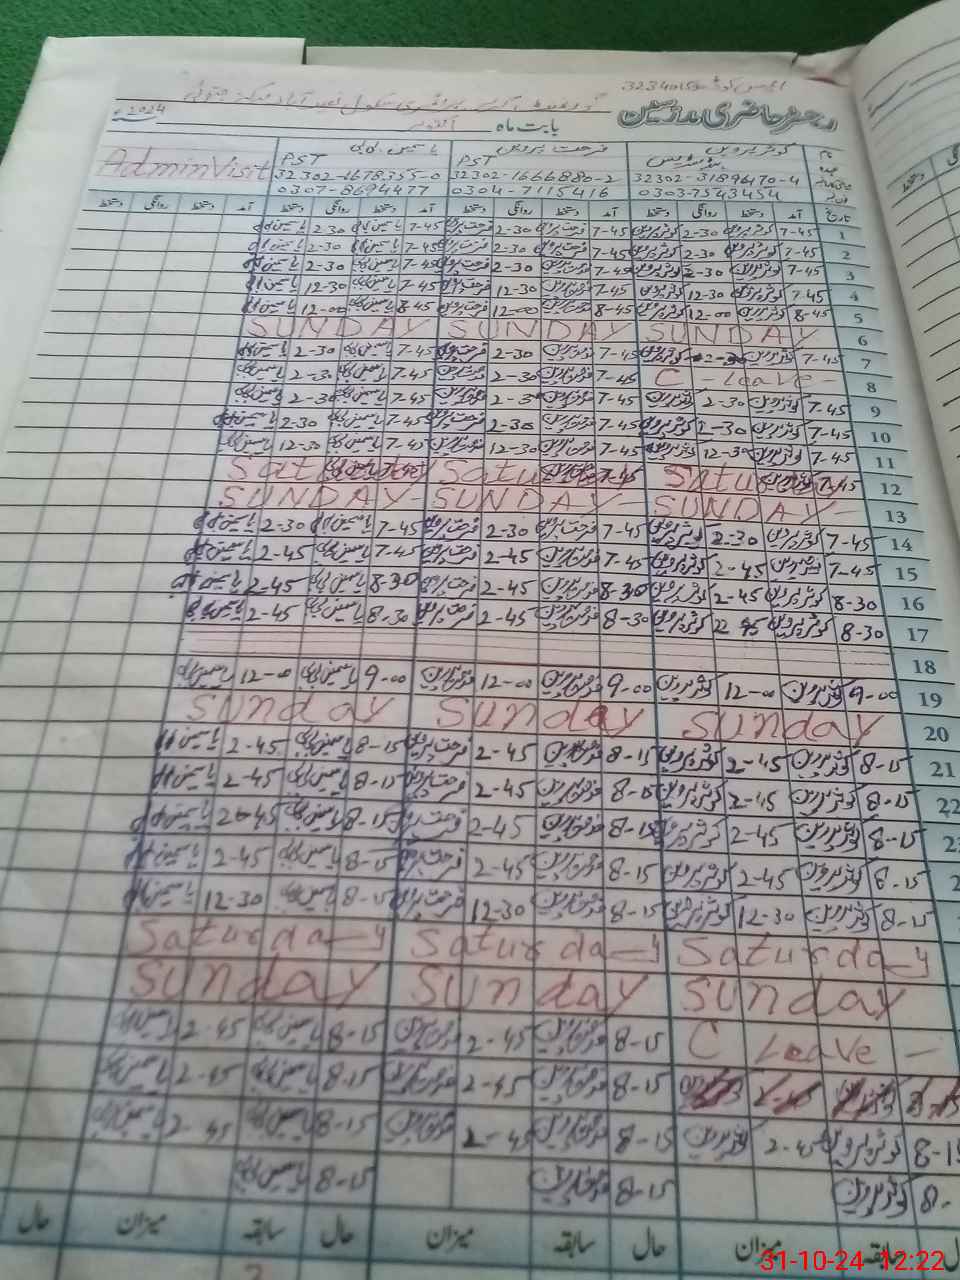 32340150
رجسٹر حاضری مدرسین
بابت ماہ اکتوبر 2024ء
کوثر پروین فرحت پروین یاسمین بی بی
PST PST Admin Visit
32302-3189670-4 32302-1666880-2 32302-1678355-0
0303-7543454 0304-7115416 0307-8694477
تاریخ آمد دستخط روانگی دستخط آمد دستخط روانگی دستخط آمد دستخط روانگی دستخط آمد دستخط روانگی دستخط
1 7-45 کوثر پروین 2-30 کوثر پروین 7-45 فرحت پروین 2-30 فرحت پروین 7-45 یاسمین بی بی 2-30 یاسمین بی بی
2 7-45 کوثر پروین 2-30 کوثر پروین 7-45 فرحت پروین 2-30 فرحت پروین 7-45 یاسمین بی بی 2-30 یاسمین بی بی
3 7-45 کوثر پروین 2-30 کوثر پروین 7-45 فرحت پروین 2-30 فرحت پروین 7-45 یاسمین بی بی 2-30 یاسمین بی بی
4 7-45 کوثر پروین 12-30 کوثر پروین 7-45 فرحت پروین 12-30 فرحت پروین 7-45 یاسمین بی بی 12-30 یاسمین بی بی
5 8-45 کوثر پروین 12-00 کوثر پروین 8-45 فرحت پروین 12-00 فرحت پروین 8-45 یاسمین بی بی 12-00 یاسمین بی بی
6 SUNDAY SUNDAY SUNDAY
7 7-45 کوثر پروین 2-30 کوثر پروین 7-45 فرحت پروین 2-30 فرحت پروین 7-45 یاسمین بی بی 2-30 یاسمین بی بی
8 C - Leave - 7-45 فرحت پروین 2-30 فرحت پروین 7-45 یاسمین بی بی 2-30 یاسمین بی بی
9 7-45 کوثر پروین 2-30 کوثر پروین 7-45 فرحت پروین 2-30 فرحت پروین 7-45 یاسمین بی بی 2-30 یاسمین بی بی
10 7-45 کوثر پروین 2-30 کوثر پروین 7-45 فرحت پروین 2-30 فرحت پروین 7-45 یاسمین بی بی 2-30 یاسمین بی بی
11 7-45 کوثر پروین 12-30 کوثر پروین 7-45 فرحت پروین 12-30 فرحت پروین 7-45 یاسمین بی بی 12-30 یاسمین بی بی
12 7-45 Satu 7-45 Satu Satu
13 SUNDAY - SUNDAY - SUNDAY -
14 7-45 کوثر پروین 2-30 کوثر پروین 7-45 فرحت پروین 2-30 فرحت پروین 7-45 یاسمین بی بی 2-30 یاسمین بی بی
15 7-45 کوثر پروین 2-45 کوثر پروین 7-45 فرحت پروین 2-45 فرحت پروین 7-45 یاسمین بی بی 2-45 یاسمین بی بی
16 8-30 کوثر پروین 2-45 کوثر پروین 8-30 فرحت پروین 2-45 فرحت پروین 8-30 یاسمین بی بی 2-45 یاسمین بی بی
17 8-30 کوثر پروین 2-45 کوثر پروین 8-30 فرحت پروین 2-45 فرحت پروین 8-30 یاسمین بی بی 2-45 یاسمین بی بی
18
19 9-00 کوثر پروین 12-00 کوثر پروین 9-00 فرحت پروین 12-00 فرحت پروین 9-00 یاسمین بی بی 12-00 یاسمین بی بی
20 Sunday Sunday Sunday
21 8-15 کوثر پروین 2-45 کوثر پروین 8-15 فرحت پروین 2-45 فرحت پروین 8-15 یاسمین بی بی 2-45 یاسمین بی بی
22 8-15 کوثر پروین 2-45 کوثر پروین 8-15 فرحت پروین 2-45 فرحت پروین 8-15 یاسمین بی بی 2-45 یاسمین بی بی
8-15 کوثر پروین 2-45 کوثر پروین 8-15 فرحت پروین 2-45 فرحت پروین 8-15 یاسمین بی بی 2-45 یاسمین بی بی
8-15 کوثر پروین 2-45 کوثر پروین 8-15 فرحت پروین 2-45 فرحت پروین 8-15 یاسمین بی بی 2-45 یاسمین بی بی
8-15 کوثر پروین 12-30 کوثر پروین 8-15 فرحت پروین 12-30 فرحت پروین 8-15 یاسمین بی بی 12-30 یاسمین بی بی
Saturda-y Saturda-y Saturda-y
Sunday Sunday Sunday
C Leave - 8-15 فرحت پروین 2-45 فرحت پروین 8-15 یاسمین بی بی 2-45 یاسمین بی بی
2-45 8-15 فرحت پروین 2-45 فرحت پروین 8-15 یاسمین بی بی 2-45 یاسمین بی بی
8-15 کوثر پروین 2-45 کوثر پروین 8-15 فرحت پروین 2-45 فرحت پروین 8-15 یاسمین بی بی 2-45 یاسمین بی بی
کوثر پروین 8-15 فرحت پروین 8-15 یاسمین بی بی
سابقہ میزان حال سابقہ میزان حال سابقہ میزان حال
31-10-24 12:22